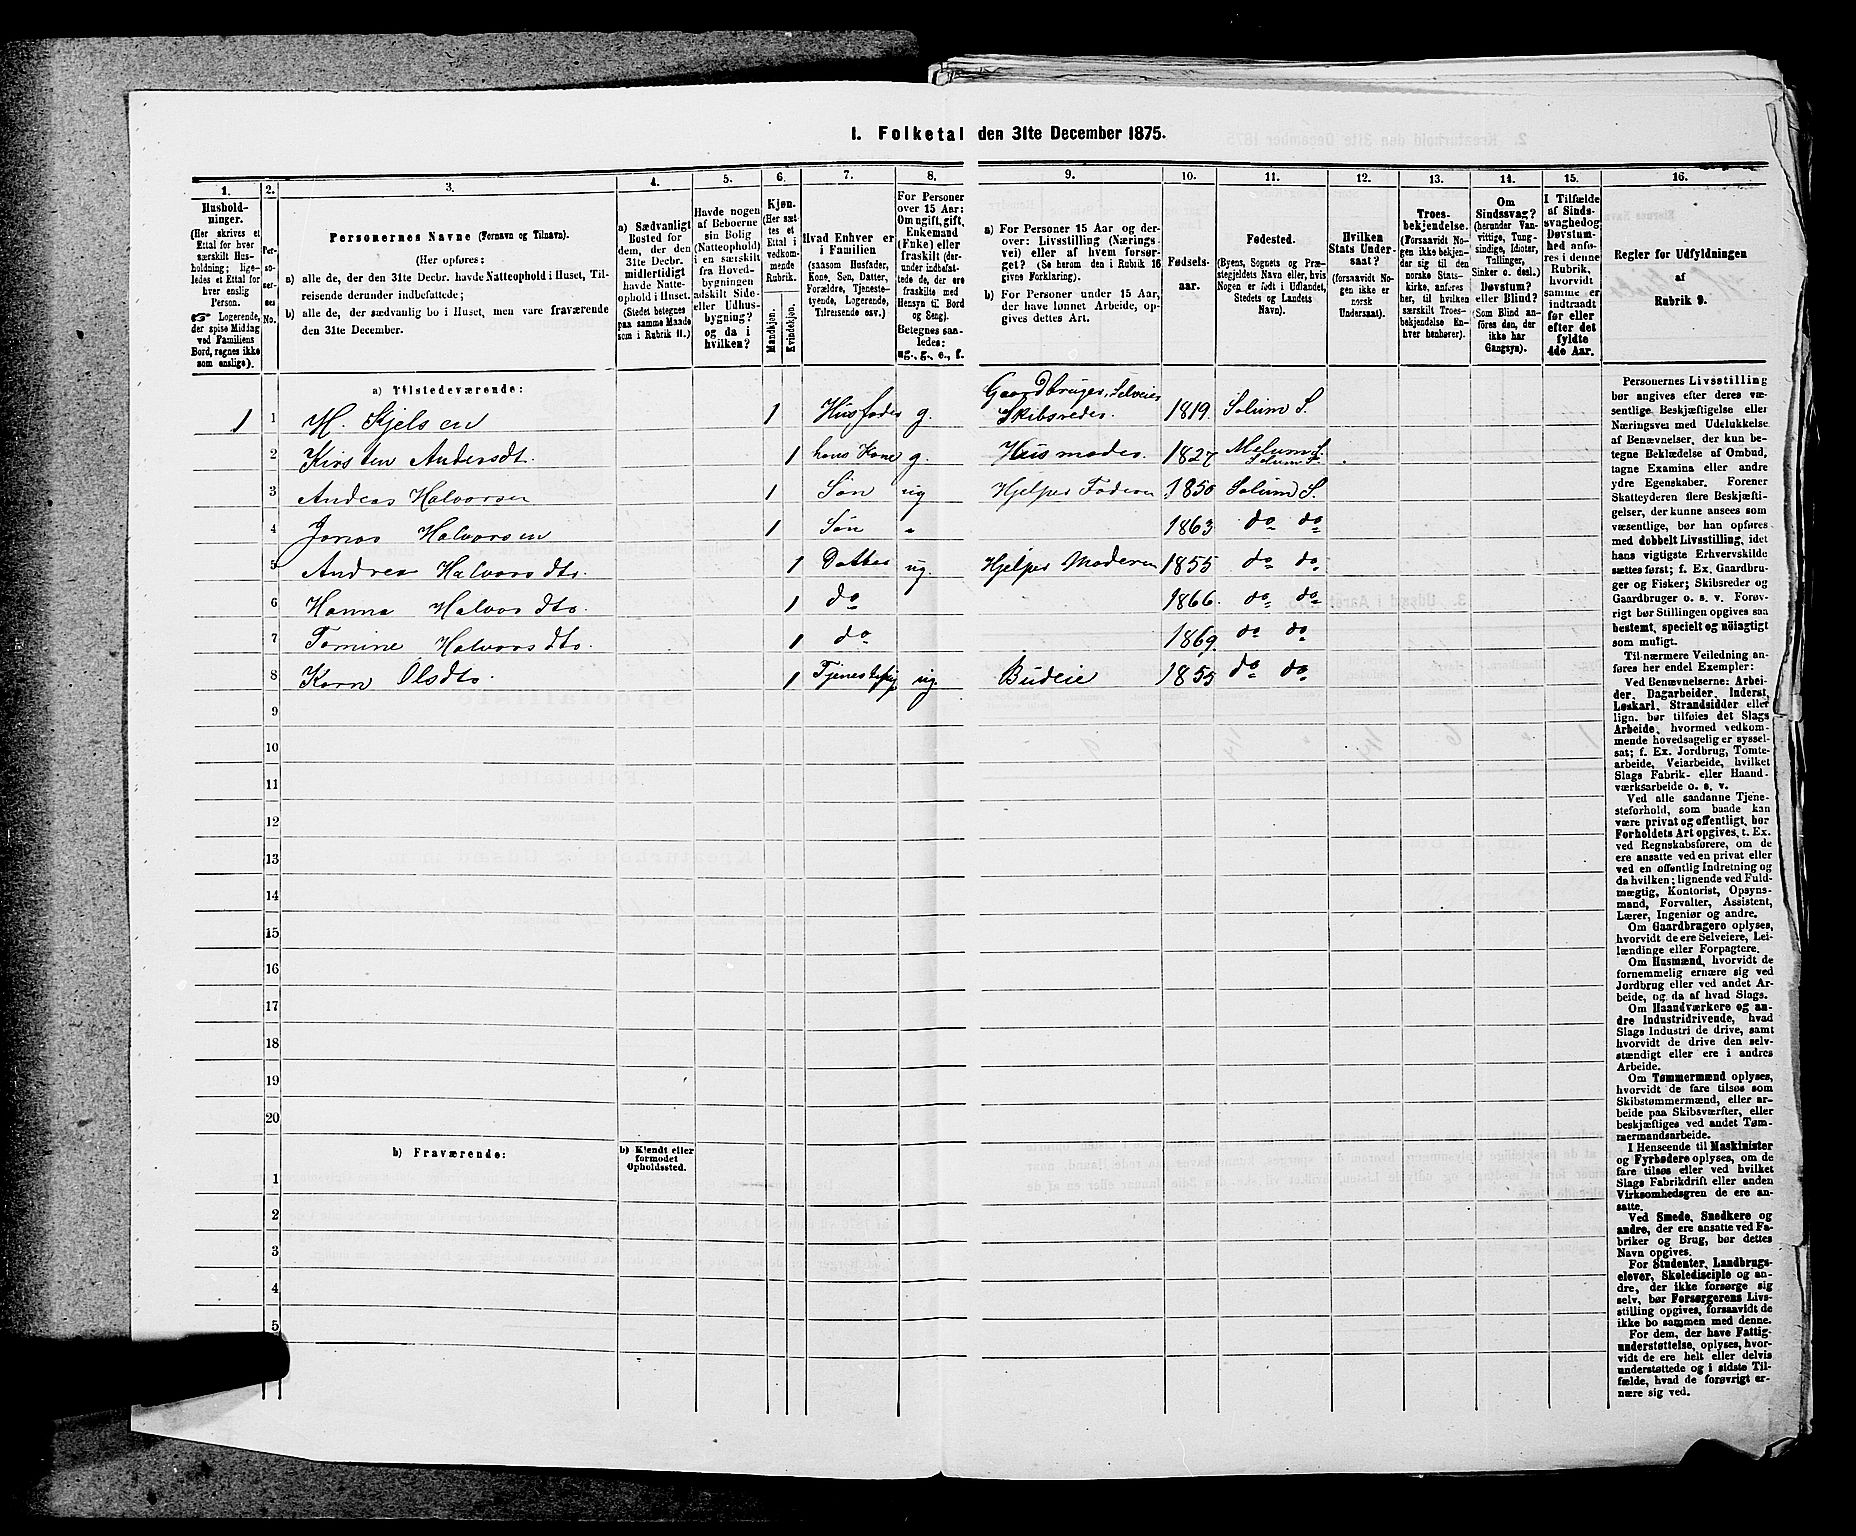 1. Folketal den 31te December 1875.
1. 2. 3. 4. 5. 6. 7. 8. 9. 10. 11. 12. 13. 14. 15. 16.
Hushold-
ninger.
(Her skrives et
Ettal for hver
særskilt Hus-
holdning; lige-
ledes et Ettal for
hver enslig
Person.
☞ Logerende,
der spise Middag
ved Familiens
Bord, regnes ikke
som enslige).
Per-
so-
ner-
nes
No.
Personernes Navne (Fornavn og Tilnavn).
(Her opføres:
a) alle de, der den 31te Decbr. havde Natteophold i Huset, Til-
reisende derunder indbefattede;
b) alle de, der sædvanlig bo i Huset, men vare fraværende
den 31te December.
a) Sædvanligt
Bosted for
dem, der den
31te Decbr.
midlertidigt
havde Natte-
ophold i Huset.
(Stedet betegnes
paa samme Maade
som i Rubrik 11.)
Havde nogen
af Beboerne
sin Bolig
(Natteophold)
i en særskilt
fra Hoved-
bygningen
adskilt Side-
eller Udhus-
bygning?
og da i
hvilken?
Kjøn.
(Her sæt-
tes et
Ettal i
vedkom-
mende
Rubrik.
Mandkjøn.
Kvindekjøn.
Hvad Enhver er
i Familien
(saasom Husfader,
Kone, Søn, Datter,
Forældre, Tjeneste-
tyende, Logerende,
Tilreisende osv.)
For Personer
over 15 Aar:
Om ugift, gift,
Enkemand
(Enke) eller
fraskilt (der-
under indbefat-
tede de, der
ere fraskilte med
Hensyn til Bord
og Seng).
Betegnes saa-
ledes:
ug., g., e., f.
a) For Personer 15 Aar og der-
over: Livsstilling (Nærings-
vei) eller af hvem forsør-
get? (Se herom den i Rubrik 16
givne Forklaring).
b) For Personer under 15 Aar,
der have lønnet Arbeide, op-
gives dettes Art.
Fødsels-
aar.
Fødested.
(Byens, Sognets og Præ-
stegjeldets Navn eller, hvis
Nogen er født i Udlandet,
Stedets og Landets
Navn).
Hvilken
Stats Under-
saat?
(forsaavidt No-
gen ikke er
norsk
Undersaat).
Troes-
bekjendelse.
(Forsaavidt No-
gen ikke bekjen-
der sig til den
norske Stats-
kirke, anføres
her, til hvilken
særskilt Troes-
bekjendelse En-
hver henhører).
Om
Sindssvag?
(herunder Van-
vittige, Tung-
sindige, Idioter,
Tullinger,
Sinker o. desl.).
Døvstum?
eller Blind?
(Som Blind an-
føres den, der
ikke har
Gangsyn).
I Tilfælde
af Sinds-
svaghed og
Døvstum-
hed anfø-
res i denne
Rubrik,
hvorvidt
samme er
indtraadt
før eller
efter det
fyldte
4de Aar.
Regler for Udfyldningen
af
Rubrik 9.
a) Tilstedeværende:
1 1 H. Kjelsen 1 Husfader g. Gaardbruger, Selveier
Skibsreder. 1819. Solum S.
2 Kirsten Andersdt. 1 hans Kone g. Husmoder. 1827 Melum S.
Solum P.
3 Andeas Halvorsen 1 Søn ug Hjelper Faderen 1850 Solum S.
4 Jonas Halvorsen 1 Søn " 1863 do do
5 Andrea Halvorsdtr. 1 Datter ug. Hjelper Moderen 1855 do do
6 Hanna Halvorsdtr. 1 do 1866. do do
7 Tomine Halvorsdtr. 1 do 1869 do do
8 Karn Olsdtr. 1 Tjenestepig ug. Budeie 1855 do do
9
10
11
12
13
14
15
16
17
18
19
20
b) Fraværende:
b) Kjendt eller
formodet
Opholdssted.
1
2
3
4
5
Personernes Livsstilling
bør angives efter deres væ-
sentlige Beskjæftigelse eller
Næringsvei med Udelukkelse
af Benævnelser, der kun be-
tegne Beklædelse af Ombud,
tagne Examina eller andre
ydre Egenskaber. Forener
Skatteyderen flere Beskjæfti-
gelser, der kunne ansees som
væsentlige, bør han opføres
med dobbelt Livsstilling, idet
hans vigtigste Erhvervskilde
sættes først; f. Ex. Gaardbru-
ger og Fisker; Skibsreder og
Gaardbruger o. s. v. Forøv-
rigt bør Stillingen opgives saa
bestemt, specielt og nøiagtigt
som muligt.
Til nærmere Veiledning an-
føres her endel Exempler:
Ved Benævnelserne: Arbei-
der, Dagarbeider, Inderst,
Løskarl, Strandsidder eller
lign. bør tilføies det Slags
Arbeide, hvormed vedkom-
mende hovedsagelig er syssel-
sat; f. Ex. Jordbrug, Tomte-
arbeide, Veiarbeide, hvilket
Slags Fabrik- eller Haand-
værksarbeide o. s. v.
Ved alle saadanne Tjene-
steforhold, som baade kan
være privat og offentligt, bør
Forholdets Art opgives, t. Ex.
ved Regnskabsførere, om de
ere ansatte ved en privat eller
ved en offentlig Indretning og
da hvilken; lignende ved Fuld-
mægtig, Kontorist, Opsyns-
mand, Forvalter, Assistent,
Lærer, Ingeniør og andre.
Om Gaardbrugere oplyses,
hvorvidt de ere Selveiere, Lei-
lændinge eller Forpagtere.
Om Husmænd, hvorvidt de
fornemmelig ernære sig ved
Jordbrug eller ved andet Ar-
beide, og da af hvad Slags.
Om Haandværkere og an-
dre Industridrivende, hvad
Slags Industri de drive, samt
hvorvidt de drive den selv-
stændigt eller ere i andres
Arbeide.
Om Tømmermænd oplyses,
hvorvidt de fare tilsøs som
Skibstømmermænd, eller ar-
beide paa Skibsværfter, eller
beskjæftiges ved andet Tøm-
mermandsarbeide.
I Henseende til Maskinister
og Fyrbødere oplyses, om de
fare tilsøs eller ved hvilket
Slags Fabrikdrift eller anden
Virksomhedsgren de ere an-
satte.
Ved Smede, Snedkere og
andre, der ere ansatte ved Fa-
briker og Brug, bør dettes
Navn opgives.
For Studenter, Landbrugs-
elever, Skoledisciple og an-
dre, der ikke forsørge sig
selv, bør Forsørgerens Livs-
stilling opgives, forsaavidt de
ikke bo sammen med denne.
For dem, der have Fattig-
understøttelse, oplyses, hvor-
vidt de ere helt eller delvis
understøttede og i sidste Til-
fælde, hvad de forøvrigt er-
nære sig ved.